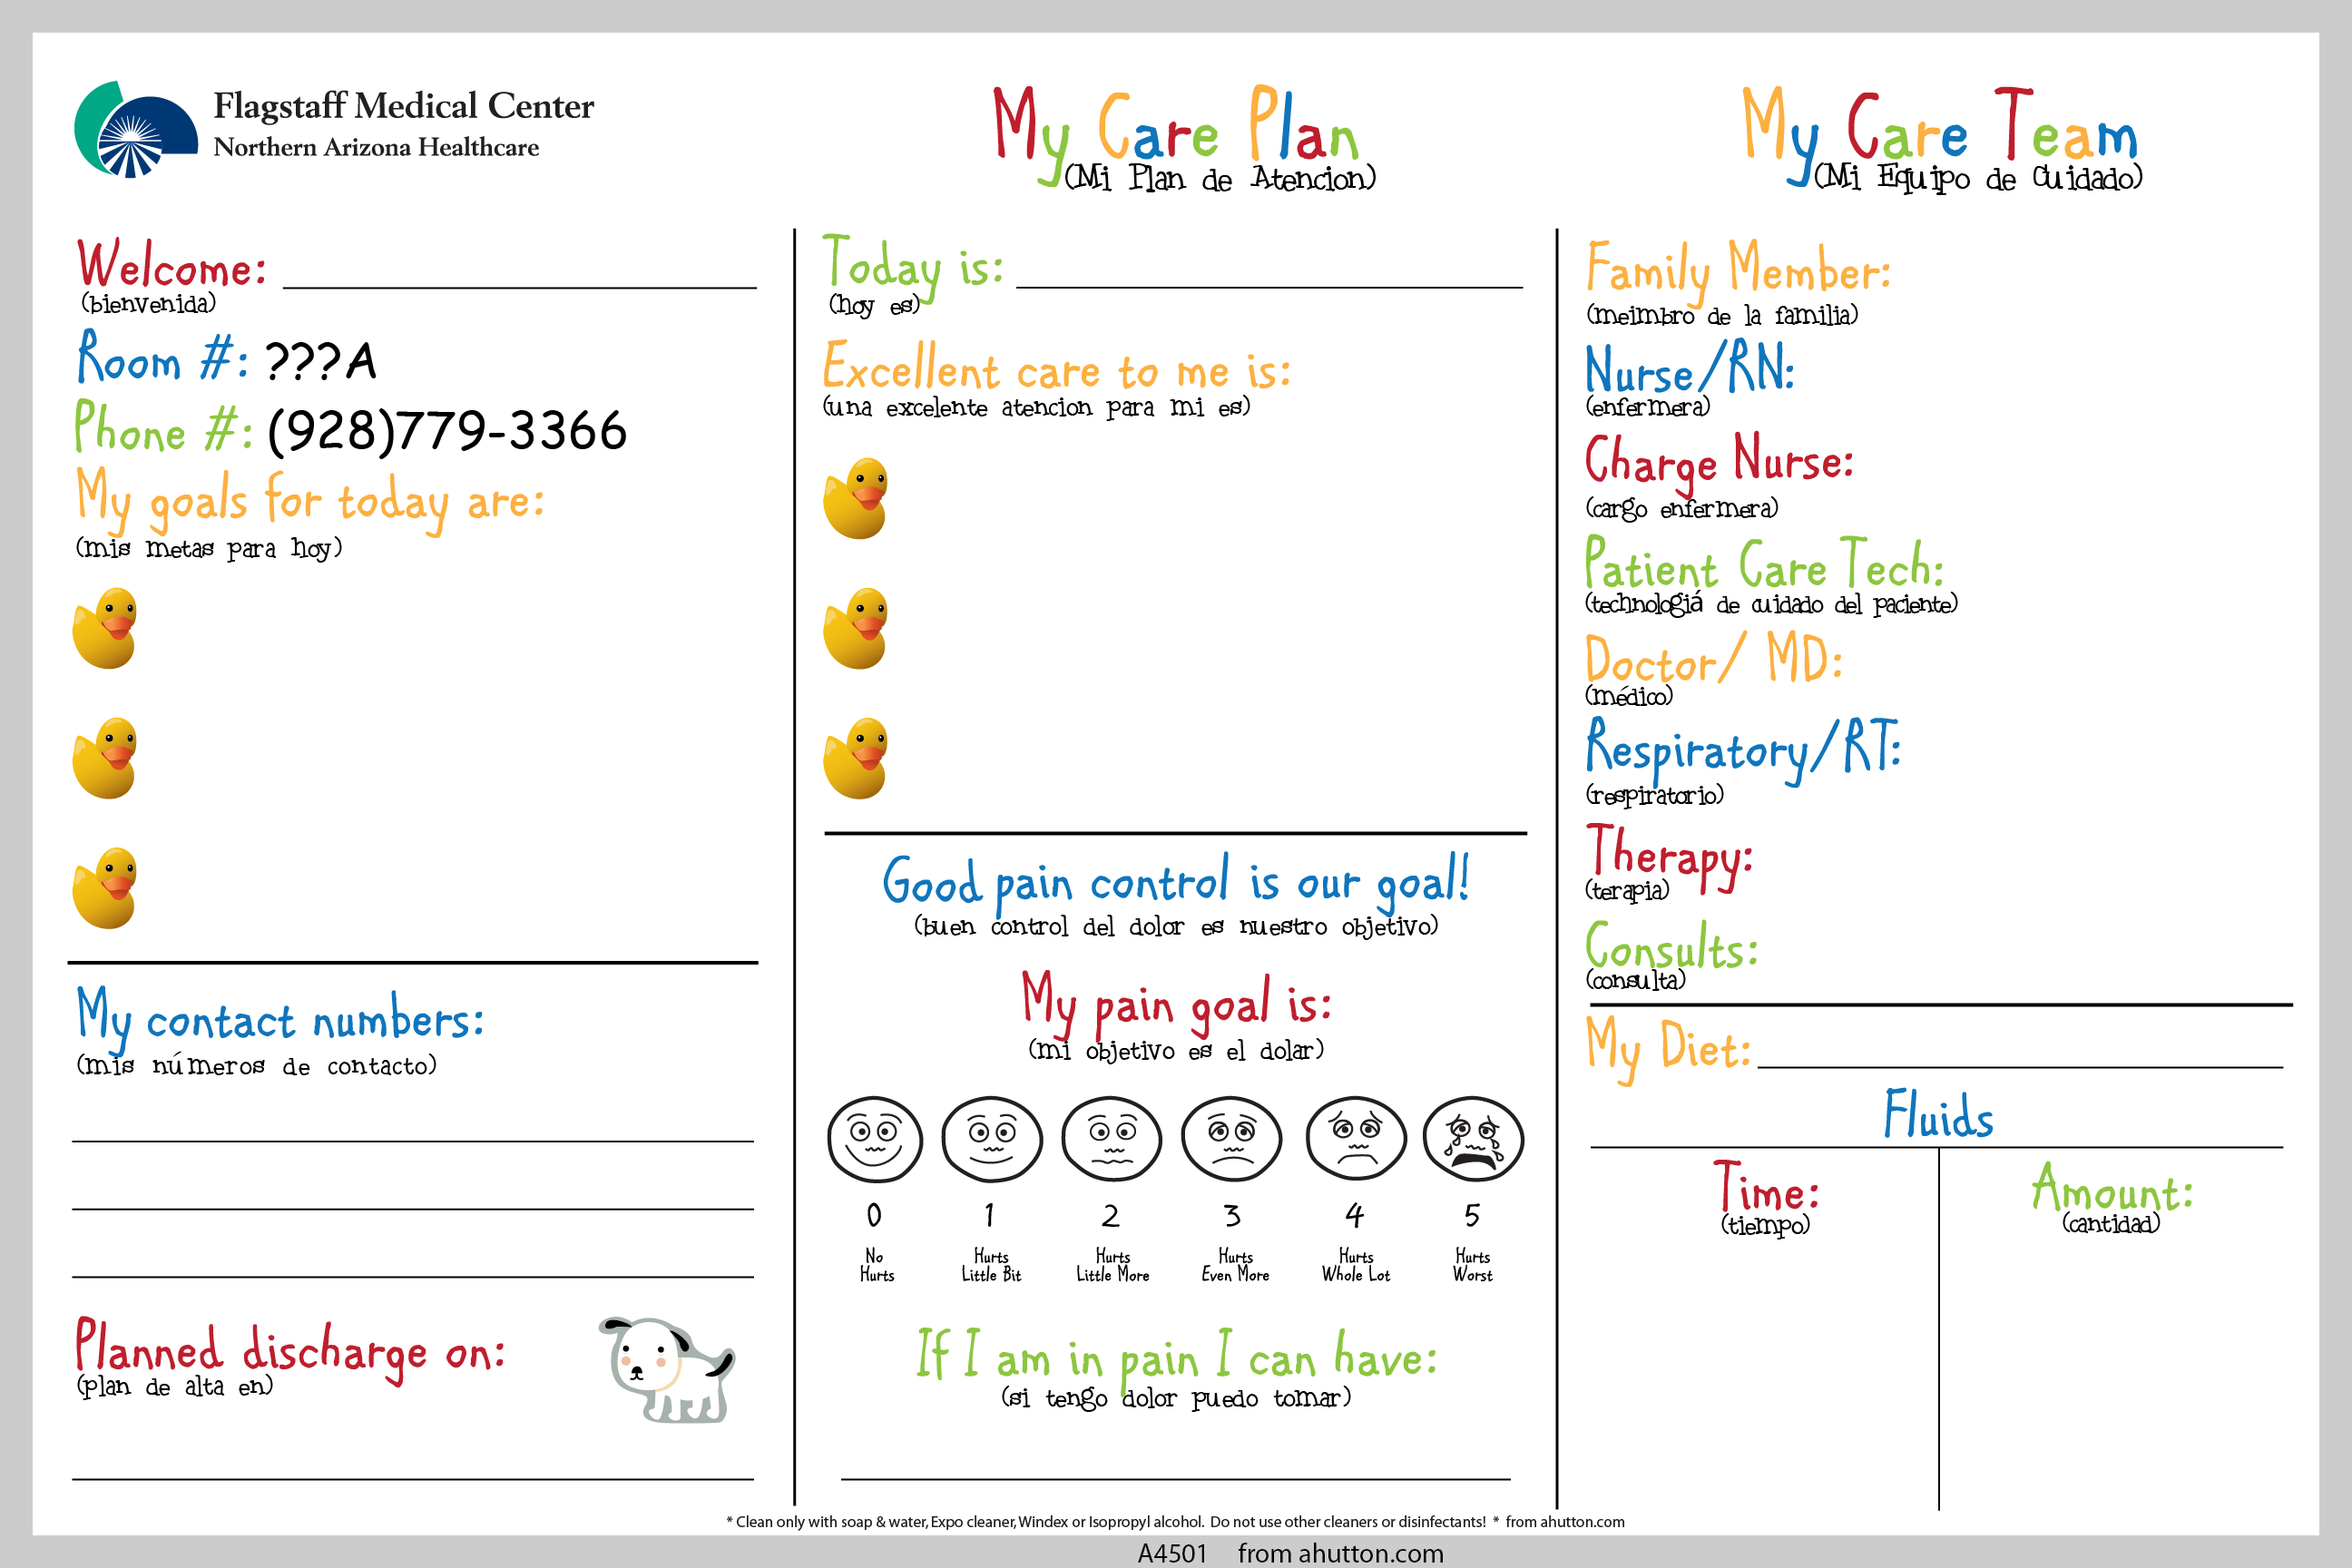 Flagstaff Medical Center
Northern Arizona Healthcare
My Care Plan
(Mi Plan de Atencion)
My Care Team
(Mi Equipo de Cuidado)
Welcome:
(bienvenida)
Room #: ???A
Phone #: (928)779-3366
My goals for today are:
(mis metas para hoy)
My contact numbers:
(mis números de contacto)
Planned discharge on:
(plan de alta en)
Today is:
(hoy es)
Excellent care to me is:
(una excelente atencion para mi es)
Good pain control is our goal!
(buen control del dolor es nuestro objetivo)
My pain goal is:
(mi objetivo es el dolar)
0 1 2 3 4 5
No Hurts
Hurts Little Bit
Hurts Little More
Hurts Even More
Hurts Whole Lot
Hurts Worst
If I am in pain I can have:
(si tengo dolor puedo tomar)
Family Member:
(meimbro de la familia)
Nurse/RN:
(enfermera)
Charge Nurse:
(cargo enfermera)
Patient Care Tech:
(technologiá de cuidado del paciente)
Doctor/ MD:
(médico)
Respiratory/RT:
(respiratorio)
Therapy:
(terapia)
Consults:
(consulta)
My Diet:
Fluids
Time:
(tiempo)
Amount:
(cantidad)
* Clean only with soap & water, Expo cleaner, Windex or Isopropyl alcohol. Do not use other cleaners or disinfectants! * from ahutton.com
A4501 from ahutton.com